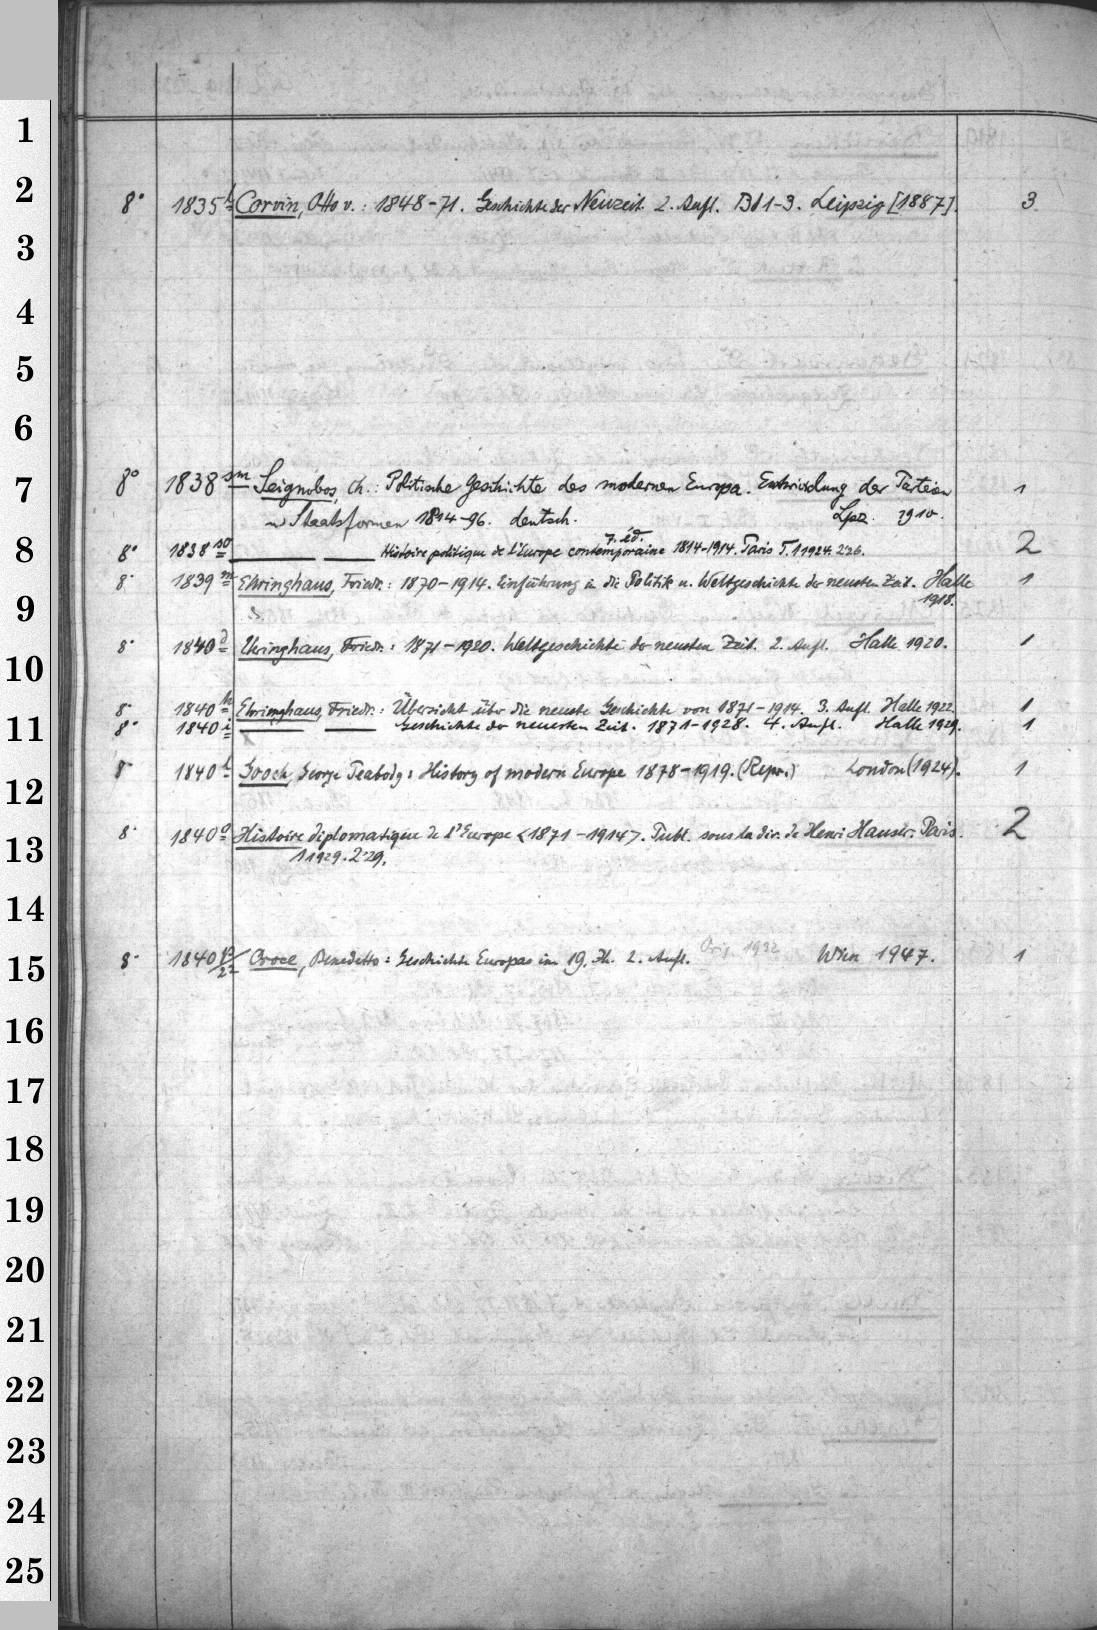 1
2
8° 1835 b Corvin, Otto v.: 1848-71. Geschichte der Neuzeit. 2. Aufl. Bd 1-3. Leipzig [1887]. 3
3
4
5
6
7
8° 1838 sm Seignobos, Ch.: Politische Geschichte des modernen Europa. Entwicklung der Parteien 1
u Staatsformen 1814-96. deutsch. Lpz. 1910.
7. éd.
8
8° 1838 so ——— ——— Histoire politique de l'Europe contemporaine 1814-1914. Paris T. 1 1924. 2 26. 2
8° 1839 m Ehringhaus, Friedr.: 1870-1914. Einführung in die Politik u. Weltgeschichte der neusten Zeit. Halle 1
1918.
9
8° 1840 d Ehringhaus, Friedr.: 1871-1920. Weltgeschichte der neusten Zeit. 2. Aufl. Halle 1920. 1
10
8° 1840 h Ehringhaus, Friedr.: Übersicht über die neuste Geschichte von 1871-1914. 3. Aufl. Halle 1922. 1
8° 1840 i ——— ——— Geschichte der neuesten Zeit. 1871-1928. 4. Aufl. Halle 1929. 1
11
8° 1840 l Gooch, George Peabody: History of modern Europe 1878-1919. (Repr.) London (1924). 1
12
8° 1840 o Histoire diplomatique de l'Europe <1871-1914>. Publ. sous la dir. de Henri Hauser. Paris. 2
1 1929. 2 29.
13
14
8° 1840 Croce, Benedetto: Geschichte Europas im 19. Jh. 2. Aufl. Orig. 1932 Wien 1947. 1
15
16
17
18
19
20
21
22
23
24
25